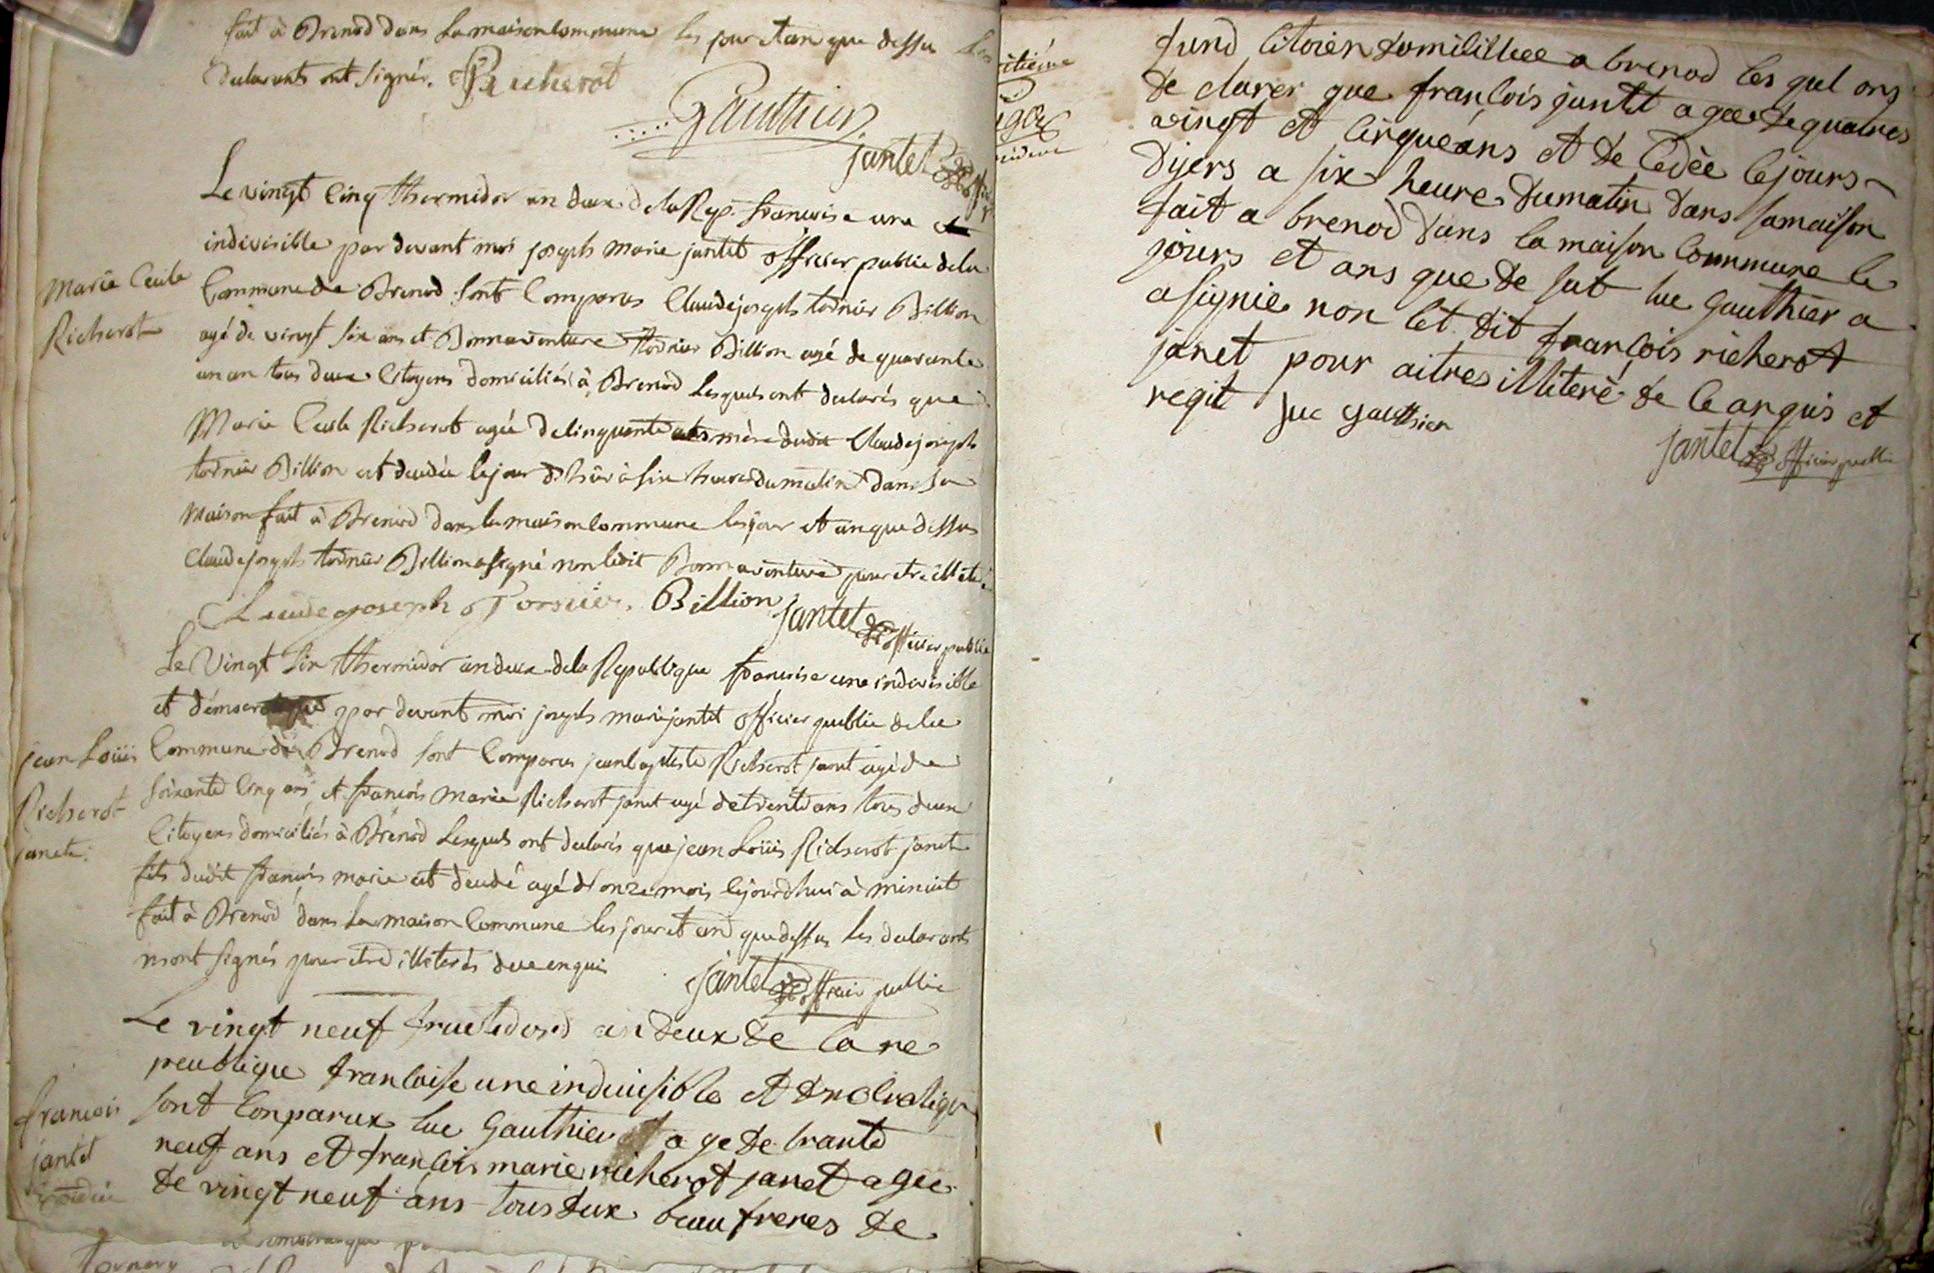 fait à Brenod dans la maison commune les jour et an que dessu les
declarants ont signés. Richerot
Gauthier
jantet officier
Le vingt cinq thermidor an deux de la Rep. francoise une et
indivisible par devant moi joseph marie jantet officier public de la
Commune de Brenod sont comparus Claude joseph tornier Billion
agé de vingt six ans et Bonnaventure tornier Billion agé de quarante
un an tous deux Citoyens domiciliés à Brenod lesquels ont declarés que
Marie Cecile Richerot agée de cinquante ans mère dudit Claude joseph
tornier Billion est decedée le jour d'hier à six heures du matin dans sa
maison fait à Brenod dans la maison commune les jour et an que dessus
Claude joseph tornier Billion a signé non ledit Bonnaventure pour etre illeteré
Claude joseph Tornier Billion jantet officier public
Marie Cecile
Richerot
Le Vingt six thermidor an deux de la Republique francoise une indivisible
et démocratique par devant moi joseph marie jantet officier public de la
Commune de Brenod sont Comparus jean baptiste Richerot janet agé de
soixante cinq ans et francois marie Richerot janet agé de trente ans tous deux
Citoyens domiciliés à Brenod lesquels ont declarés que jean Loüis Richerot janet
fils dudit francois marie est decedé agé d'onze mois cejourd'hui à minuit
fait à Brenod dans la maison Commune les jour et and que dessus les declarants
n'ont signés pour etre illeterés de ce enquis
jantet officier public
jean Loüis
Richerot
janet.
Le vingt neuf fructidord an deux de la re
peublique francoise une induisible et
sont conparux luc Gauthier a ge de trante
neuf ans et françois marie richerot janet agee
de vingt neuf ans tous dux beau freres de
francois
jantet
fund citoien domicilliee a brenod les quel ons
de clarer que françois jantet a gee de quatres
vingt et cinque ans et de cedèe le jours
dyers a six heure du matin dans sa maison
fait a brenod dans la maison commune le
jours et ans que de sut luc Gauthier a
a signie non let dit françois richerot
janet pour aitres illiterè de ce anquis et
regit luc gauthier
jantet officier public